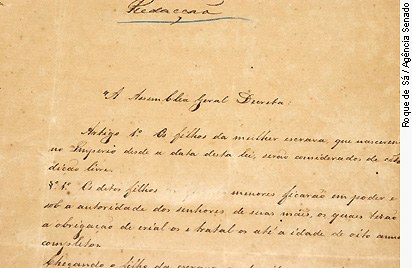 Redacção
"A Assemblea Geral Decreta:
Artigo 1º Os filhos da mulher escrava, que nascerem
no Imperio desde a data desta lei, serão considerados de
dicão livre.
§. 1º Os ditos filhos menores ficarão em poder e
sob a autoridade dos senhores de suas mãis, os quaes terão
a obrigação de crial os e tratal os até a idade de oito annos
completos.
Chegando o filho da escrava
Roque de Sá / Agência Senado